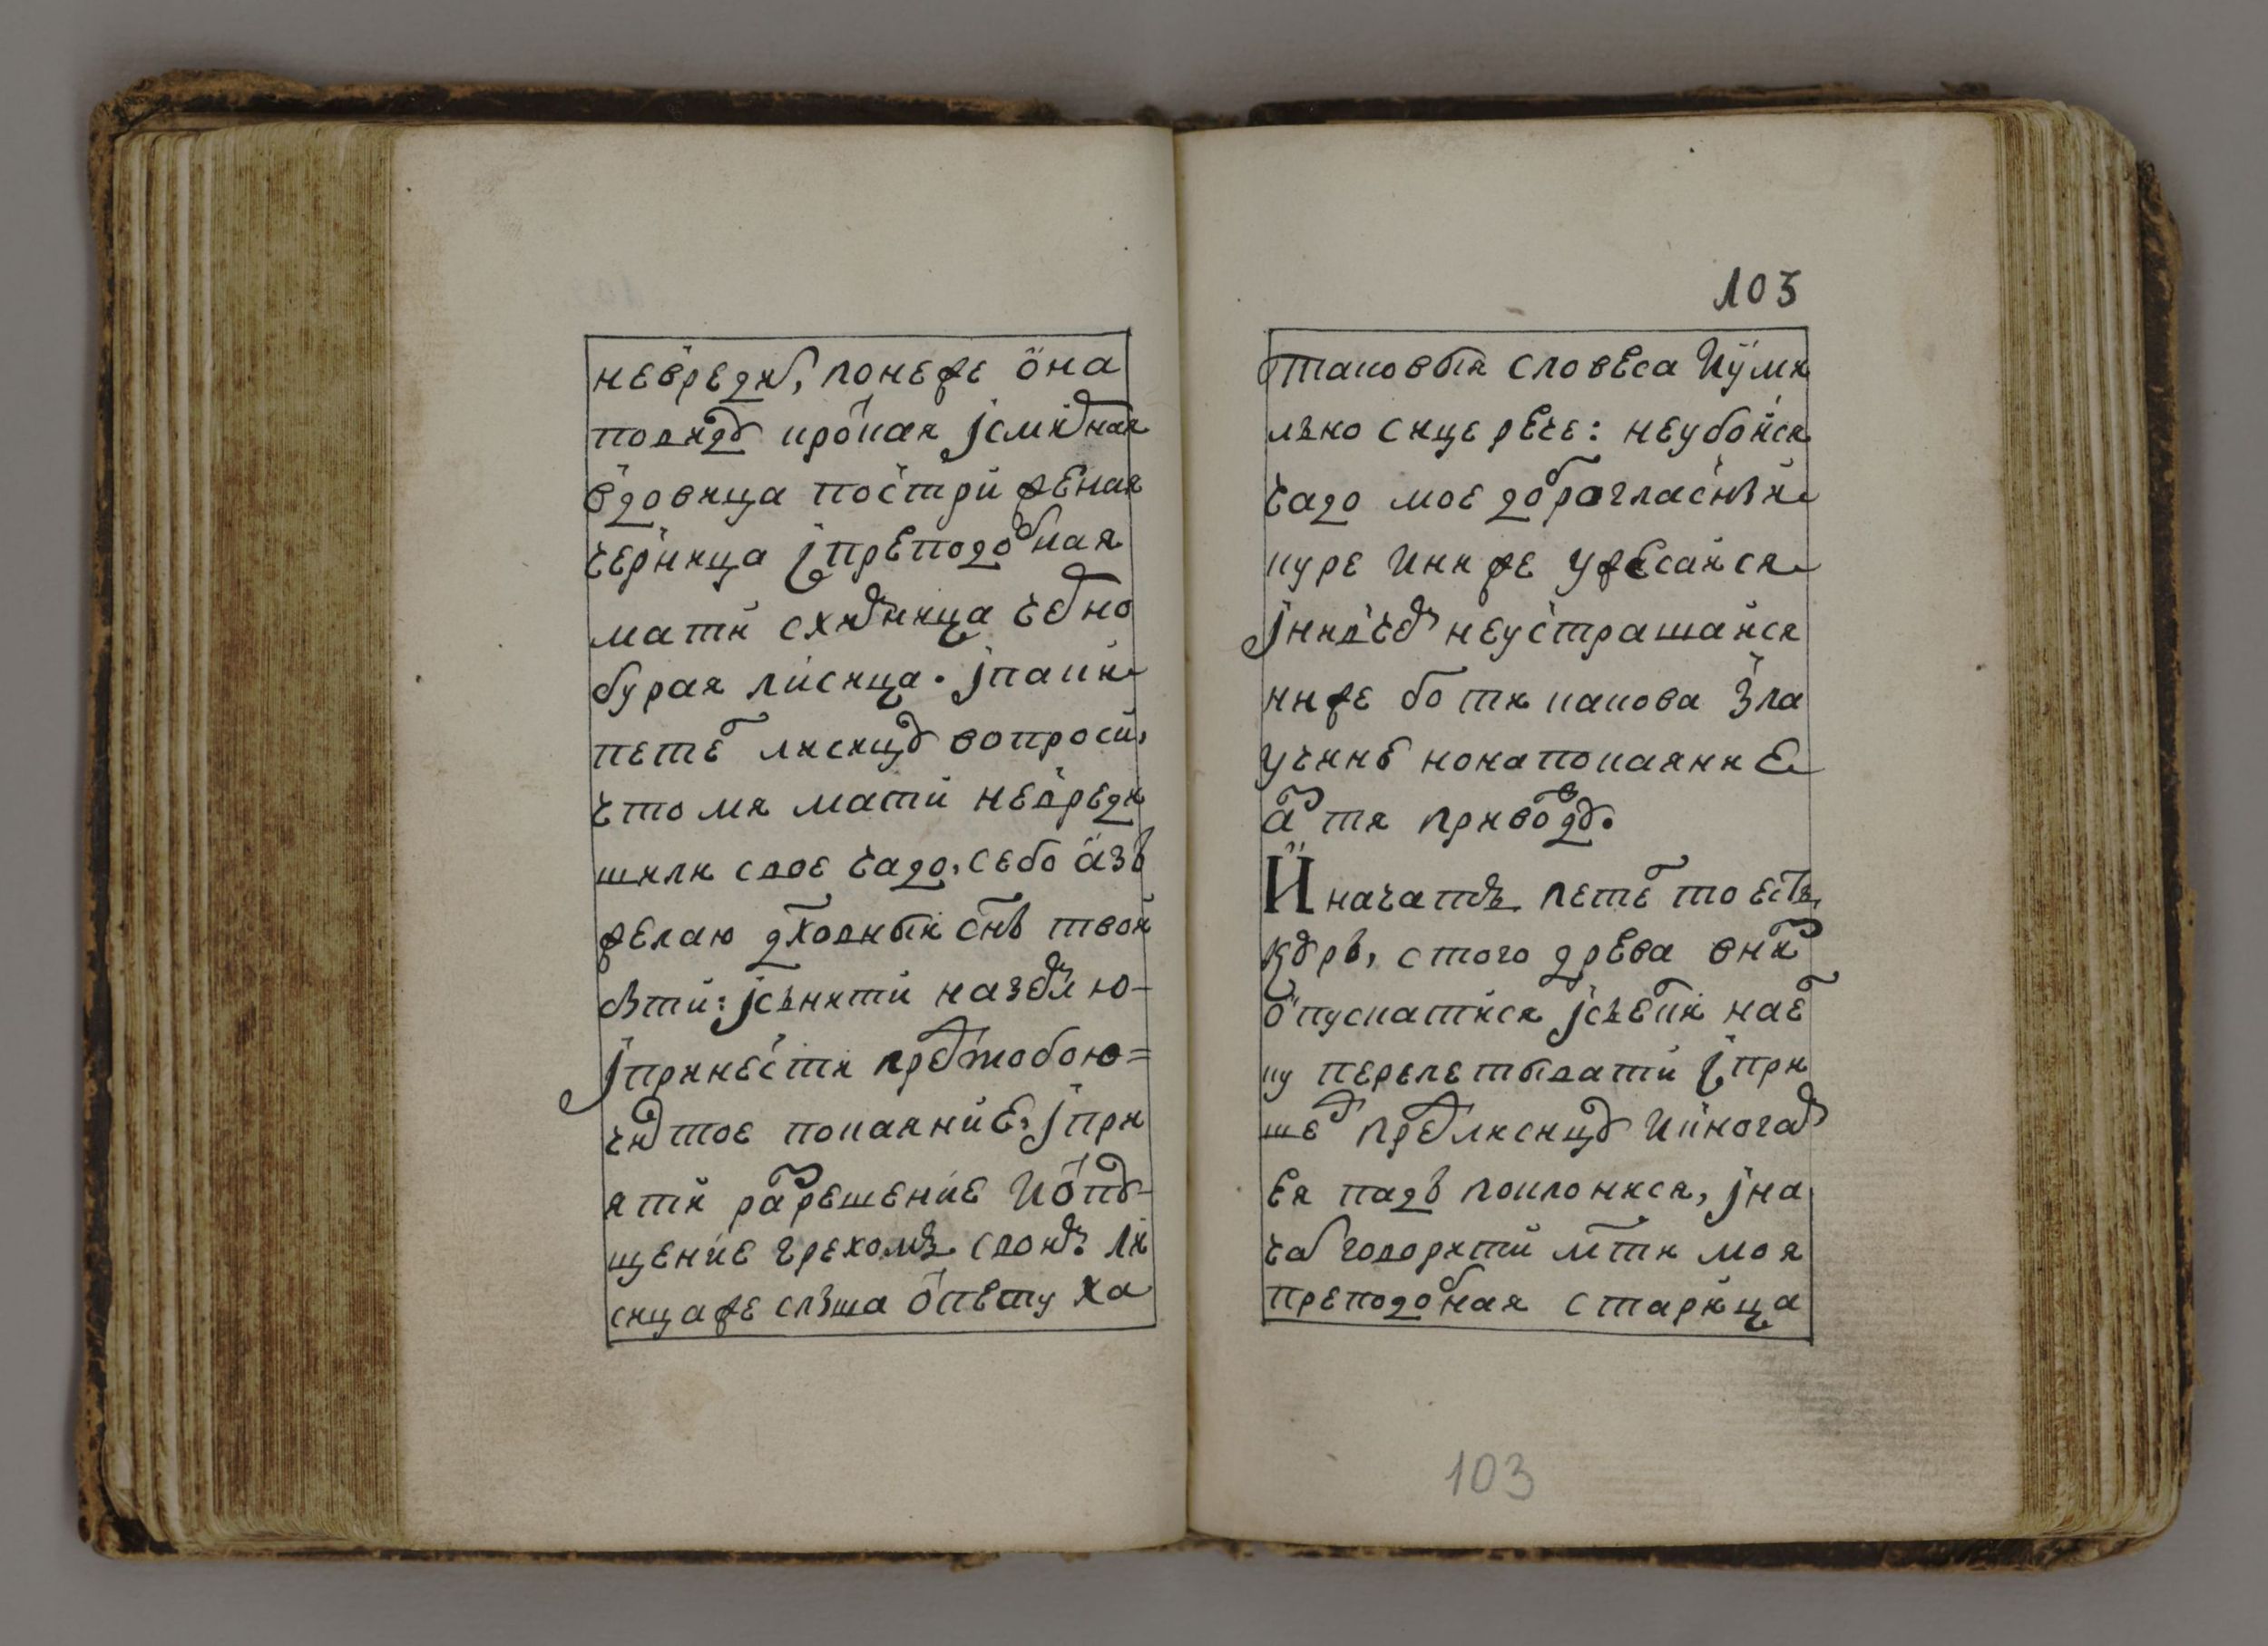 невреди, понеже она
по виду кроткая і смиренная
вдовица постриженая
черница і преподобная
мати схимница чедно
бурая лисица. і паки
петел лисицу вопроси,
что мя мати невреди
шили свое чадо, се бо азъ
желаю духовныи снъ твои
быти: і снити на землю
і принести пред тобою=
чистое покаяние, і при
яти разрешение и отпу-
щение грехомъ своимъ ли
сица же слыша от петуха
103
таковыя словеса и уми
льно сице рече: не убойся
чадо мое доброгласныи
куре и ниже ужесаися
і ничемъ не устрашаися
ниже бо ти какова зла
учиню но на покаяние
азъ тя привожду.
И начатъ петел то есть
куръ, с того древа внизъ
опускатися і с ветки на ве
ку перелетывати і при
шед пред лисицу и к ногам
ея падъ поклонися, і на
чаъ говорити мти моя
преподобная старица
103